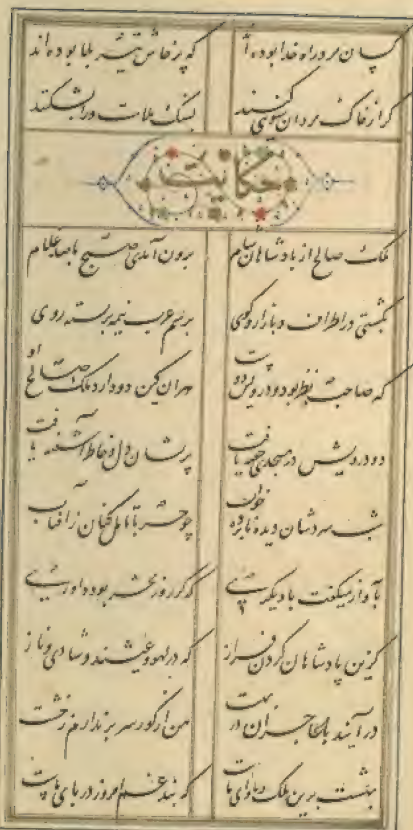 کسان مرد راه خدا بوده‌اند که پرخاش تیر بلا بوده‌اند
گر از خاک مردان سبوئی کنند بسنگ ملامت ورا بشکنند
حکایت
ملک صالح از پادشاهان شام برون آمدی صبح با غلام
بگشتی در اطراف و بازار و کوی برسم عرب نیمه بربسته روی
که صاحب نظر بود و درویش دوست هر آن کین دو دارد ملک صالح اوست
دو درویش در مسجدی خفته یافت پریشان دل و خاطر آشفته یافت
شب سردشان دیده نابرده خواب چو حربا تامل کنان ز آفتاب
بآواز میگفت با دیگری که گر روز محشر بود داوری
گر این پادشاهان گردن فراز که در لهو و عیشند و شادی و ناز
در آیند با عاجزان در بهشت من از گور سر برندارم ز خشت
بهشت برین ملک و ماوای ماست که بند غم امروز در پای ماست